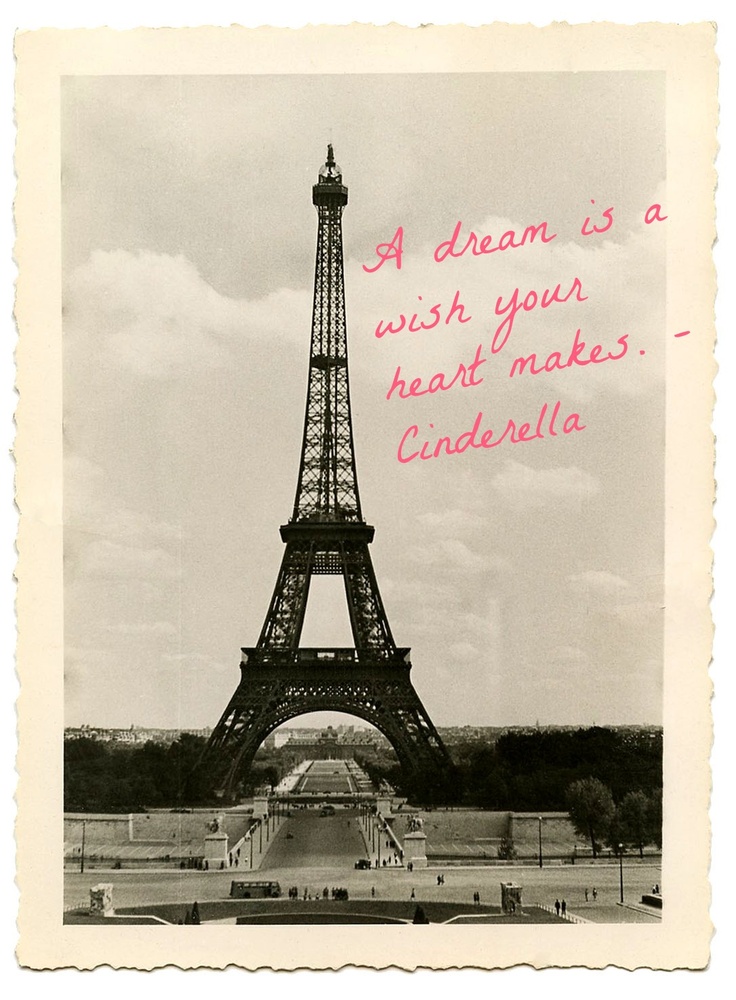 A dream is a
wish your
heart makes. -
Cinderella